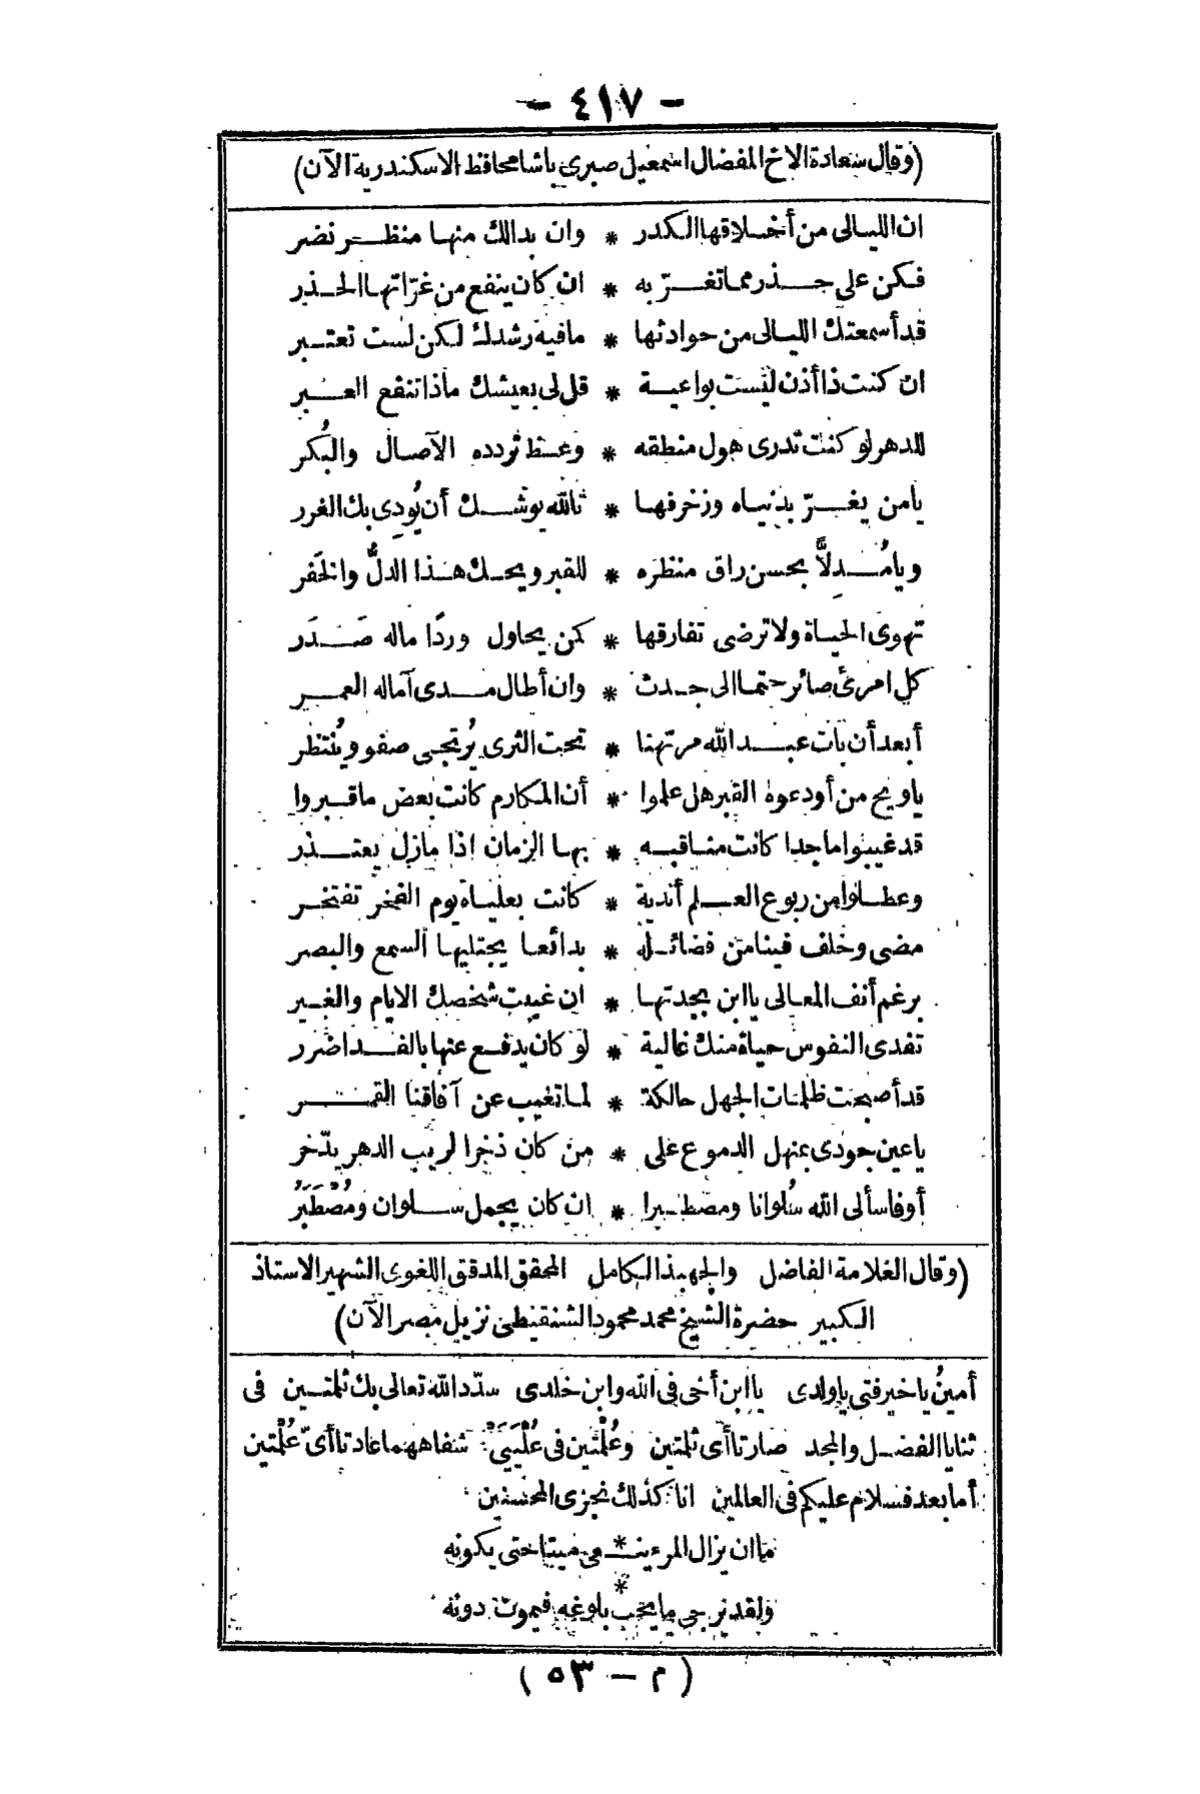 - ٤١٧ -
(وقال سعادة الاخ المفضال اسمعيل صبري باشا محافظ الاسكندرية الآن)
ان الليالى من أخلاقها الكدر * وان بدالك منها منظر نضر
فكن على حذر مما تغرّ به * ان كان ينفع من غرّاتها الحذر
قد أسمعتك الليالى من حوادثها * مافيه رشدك لكن لست تعتبر
ان كنت ذا أذن ليست بواعية * قل لى بعيشك ماذا تنفع العبر
للدهر لو كنت تدرى هول منطقه * وعظ تردده الآصال والبُكر
يامن يغرّ بدنياه وزخرفها * تالله يوشك أن يُودِى بك الغرر
ويامُدِلاًّ بحسن راق منظره * للقبر ويحك هذا الدلُّ والخَفر
تهوى الحياة ولا ترضى تفارقها * كمن يحاول وردًا ماله صَدَر
كل امرئ صائر حتما الى جدث * وان أطال مدى آماله العمر
أبعد أن بات عبد الله مرتهنا * تحت الثرى يُرتجى صفو ويُنتظر
ياويح من أودعوه القبر هل علموا * أن المكارم كانت بعض ماقبروا
قد غيبوا ماجدا كانت مناقبه * بها الزمان اذا مازل يعتذر
وعطلوا من ربوع العلم أندية * كانت بعلياه يوم الفخر تفتخر
مضى وخلف فينا من فضائله * بدائعا يجتليها السمع والبصر
برغم أنف المعالى يا ابن بجدتها * ان غيبت شخصك الايام والغير
تفدى النفوس حياة منك غالية * لو كان يدفع عنها بالفدا ضرر
قد أصبحت ظلمات الجهل حالكة * لما تغيب عن آفاقنا القمر
ياعين جودى بمنهل الدموع على * من كان ذخرا لريب الدهر يدّخر
أوفاسألى الله سُلوانا ومصطبرا * ان كان يجمل سلوان ومُصْطَبَرُ
(وقال العلامة الفاضل والجهبذ الكامل المحقق المدقق اللغوى الشهير الاستاذ
الكبير حضرة الشيخ محمد محمود الشنقيطى نزيل مصر الآن)
أمينُ ياخير فتى ياولدى يا ابن أخى فى الله وابن خلدى سدّد الله تعالى بك ثلمتين فى
ثنايا الفضل والمجد صارتا أى ثلمتين وعُلْتين فى عُلْيَىْ شفاههما عادتا أىّ عُلْتين
أما بعد فسلام عليكم فى العالمين انا كذلك نجزى المحسنين
ما ان يزال المرء ينـ * ـعى ميتا حتى يكونه
ولقد يرجى ما يحب * بلوغه فيموت دونه
(م – ٥٣)